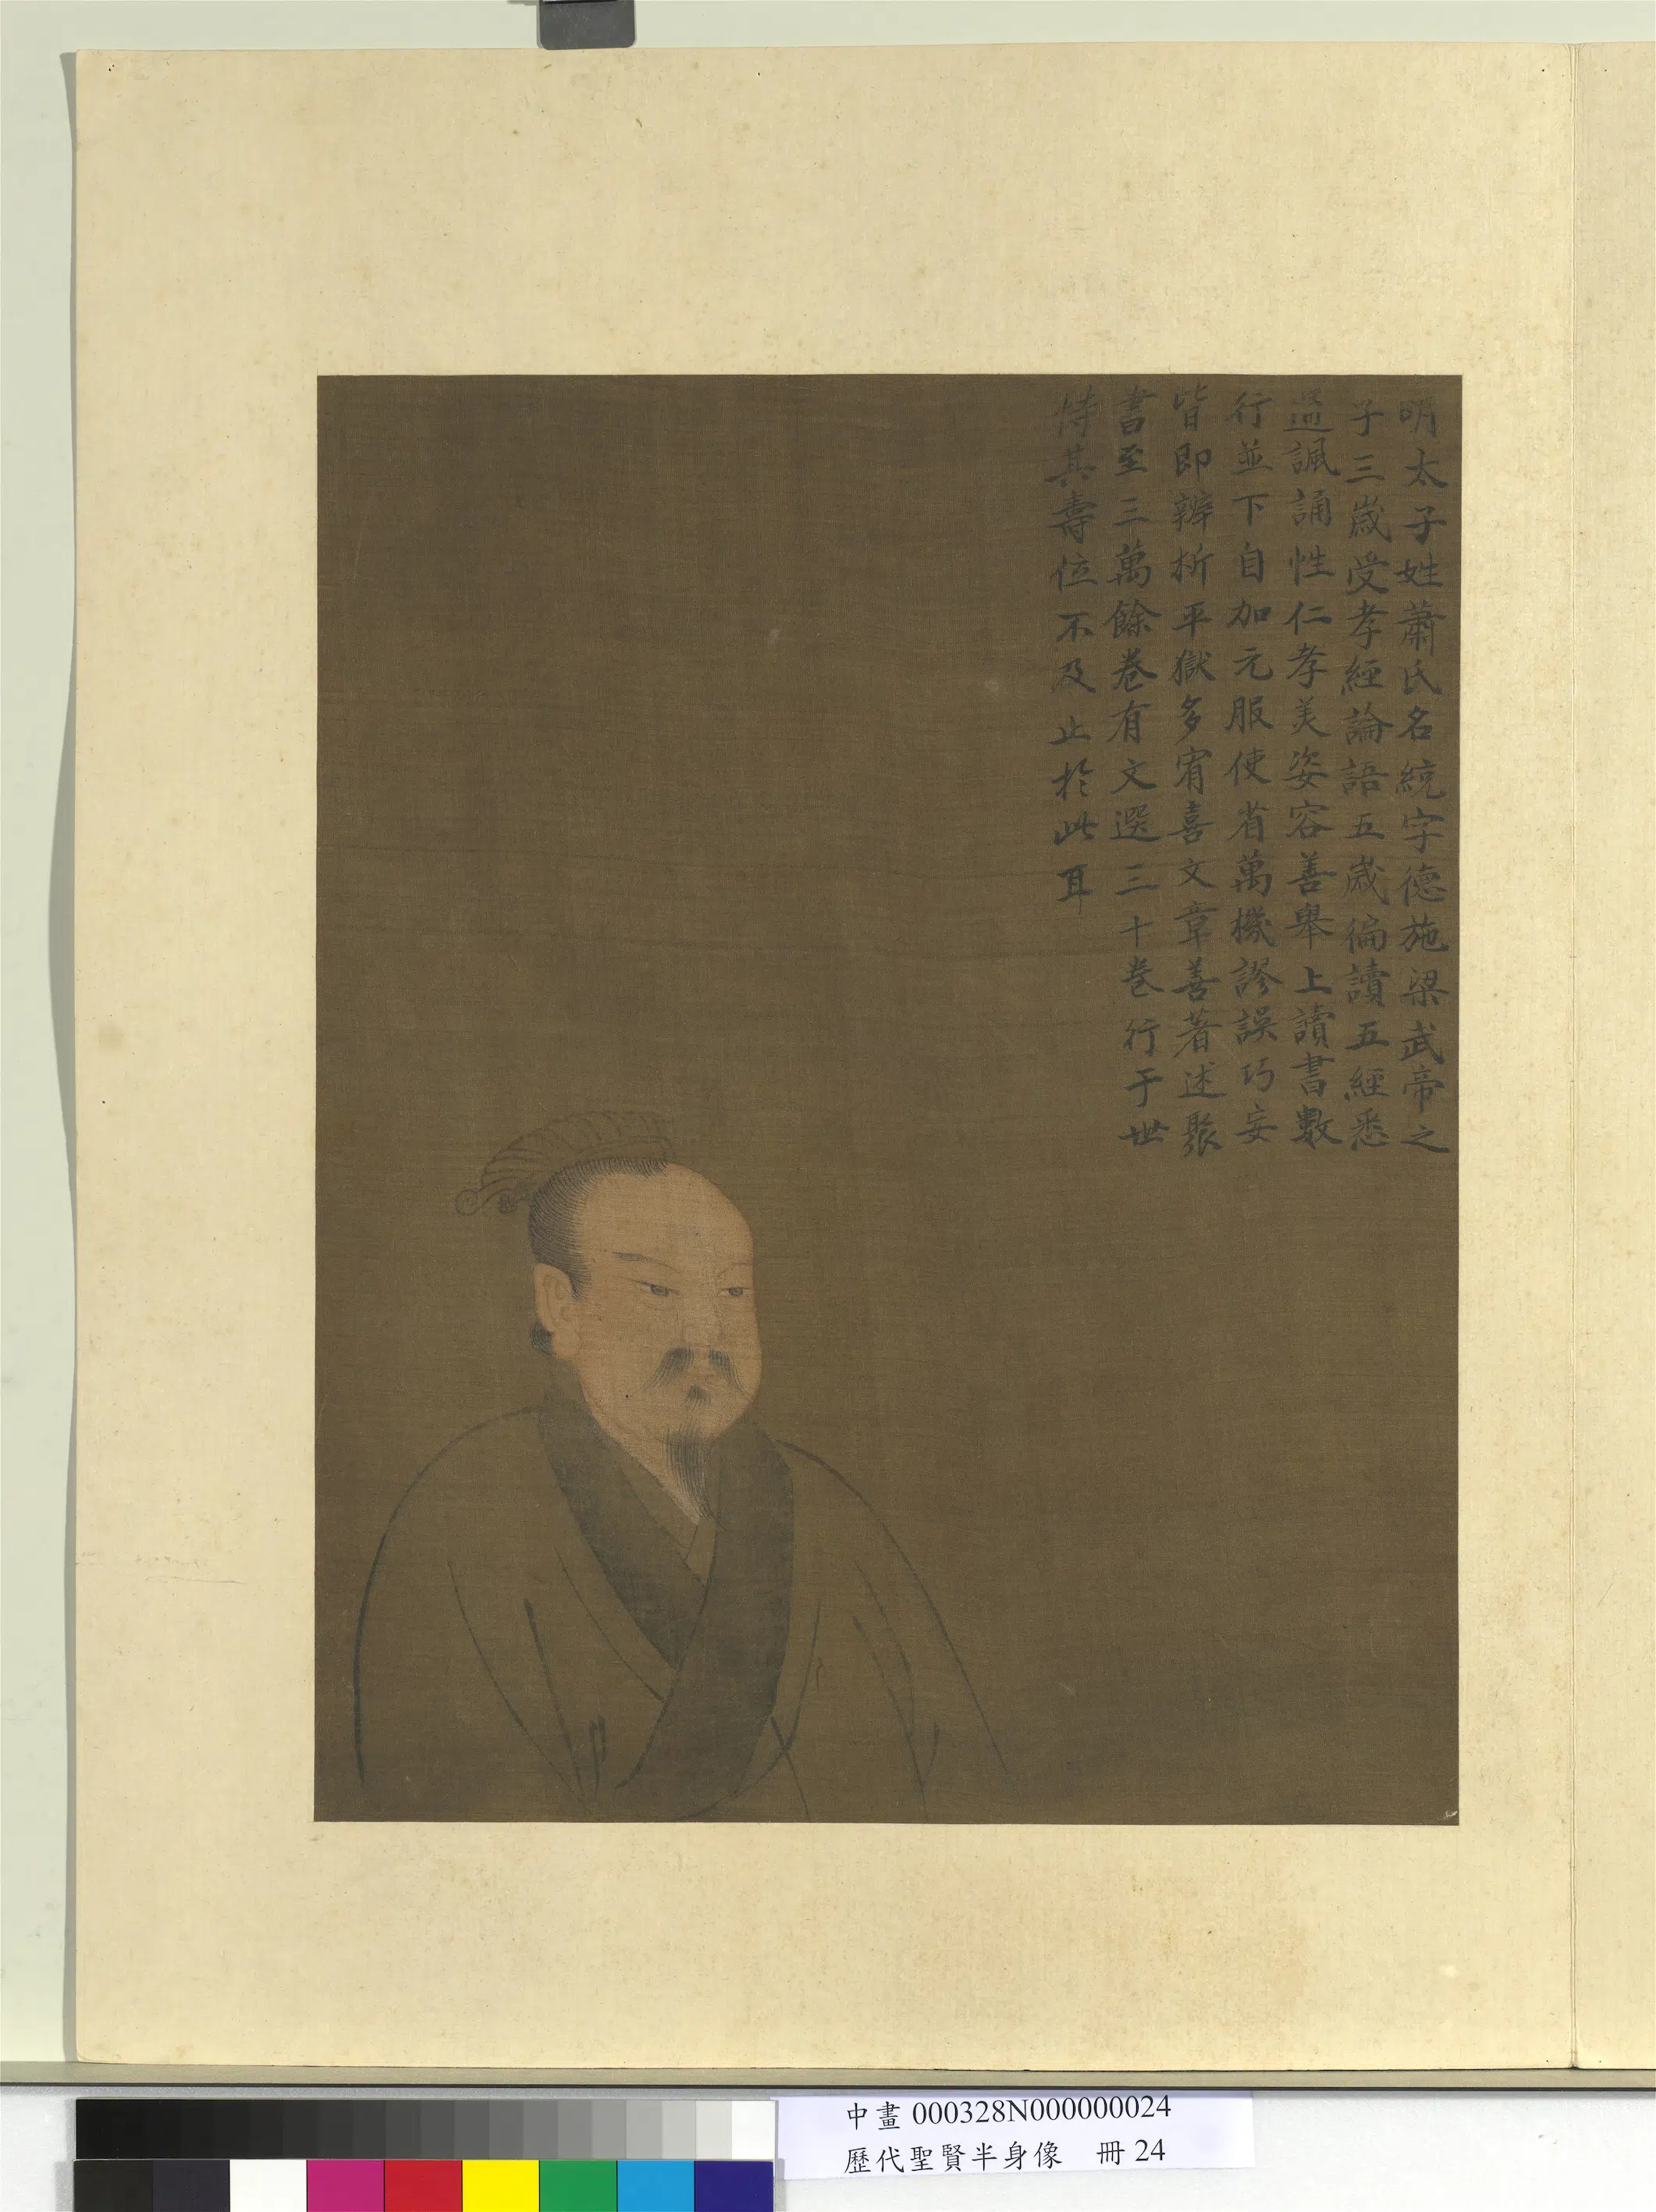 明太子姓蕭氏名統字德施梁武帝之
子三歲受孝經論語五歲徧讀五經悉
通諷誦性仁孝美姿容善舉上讀書數
行並下自加元服使省萬機謬誤巧妄
皆即辨析平獄多宥喜文章善著述聚
書至三萬餘卷有文選三十卷行于世
恃其壽位不及止於此耳
中畫 000328N000000024
歷代聖賢半身像 冊 24